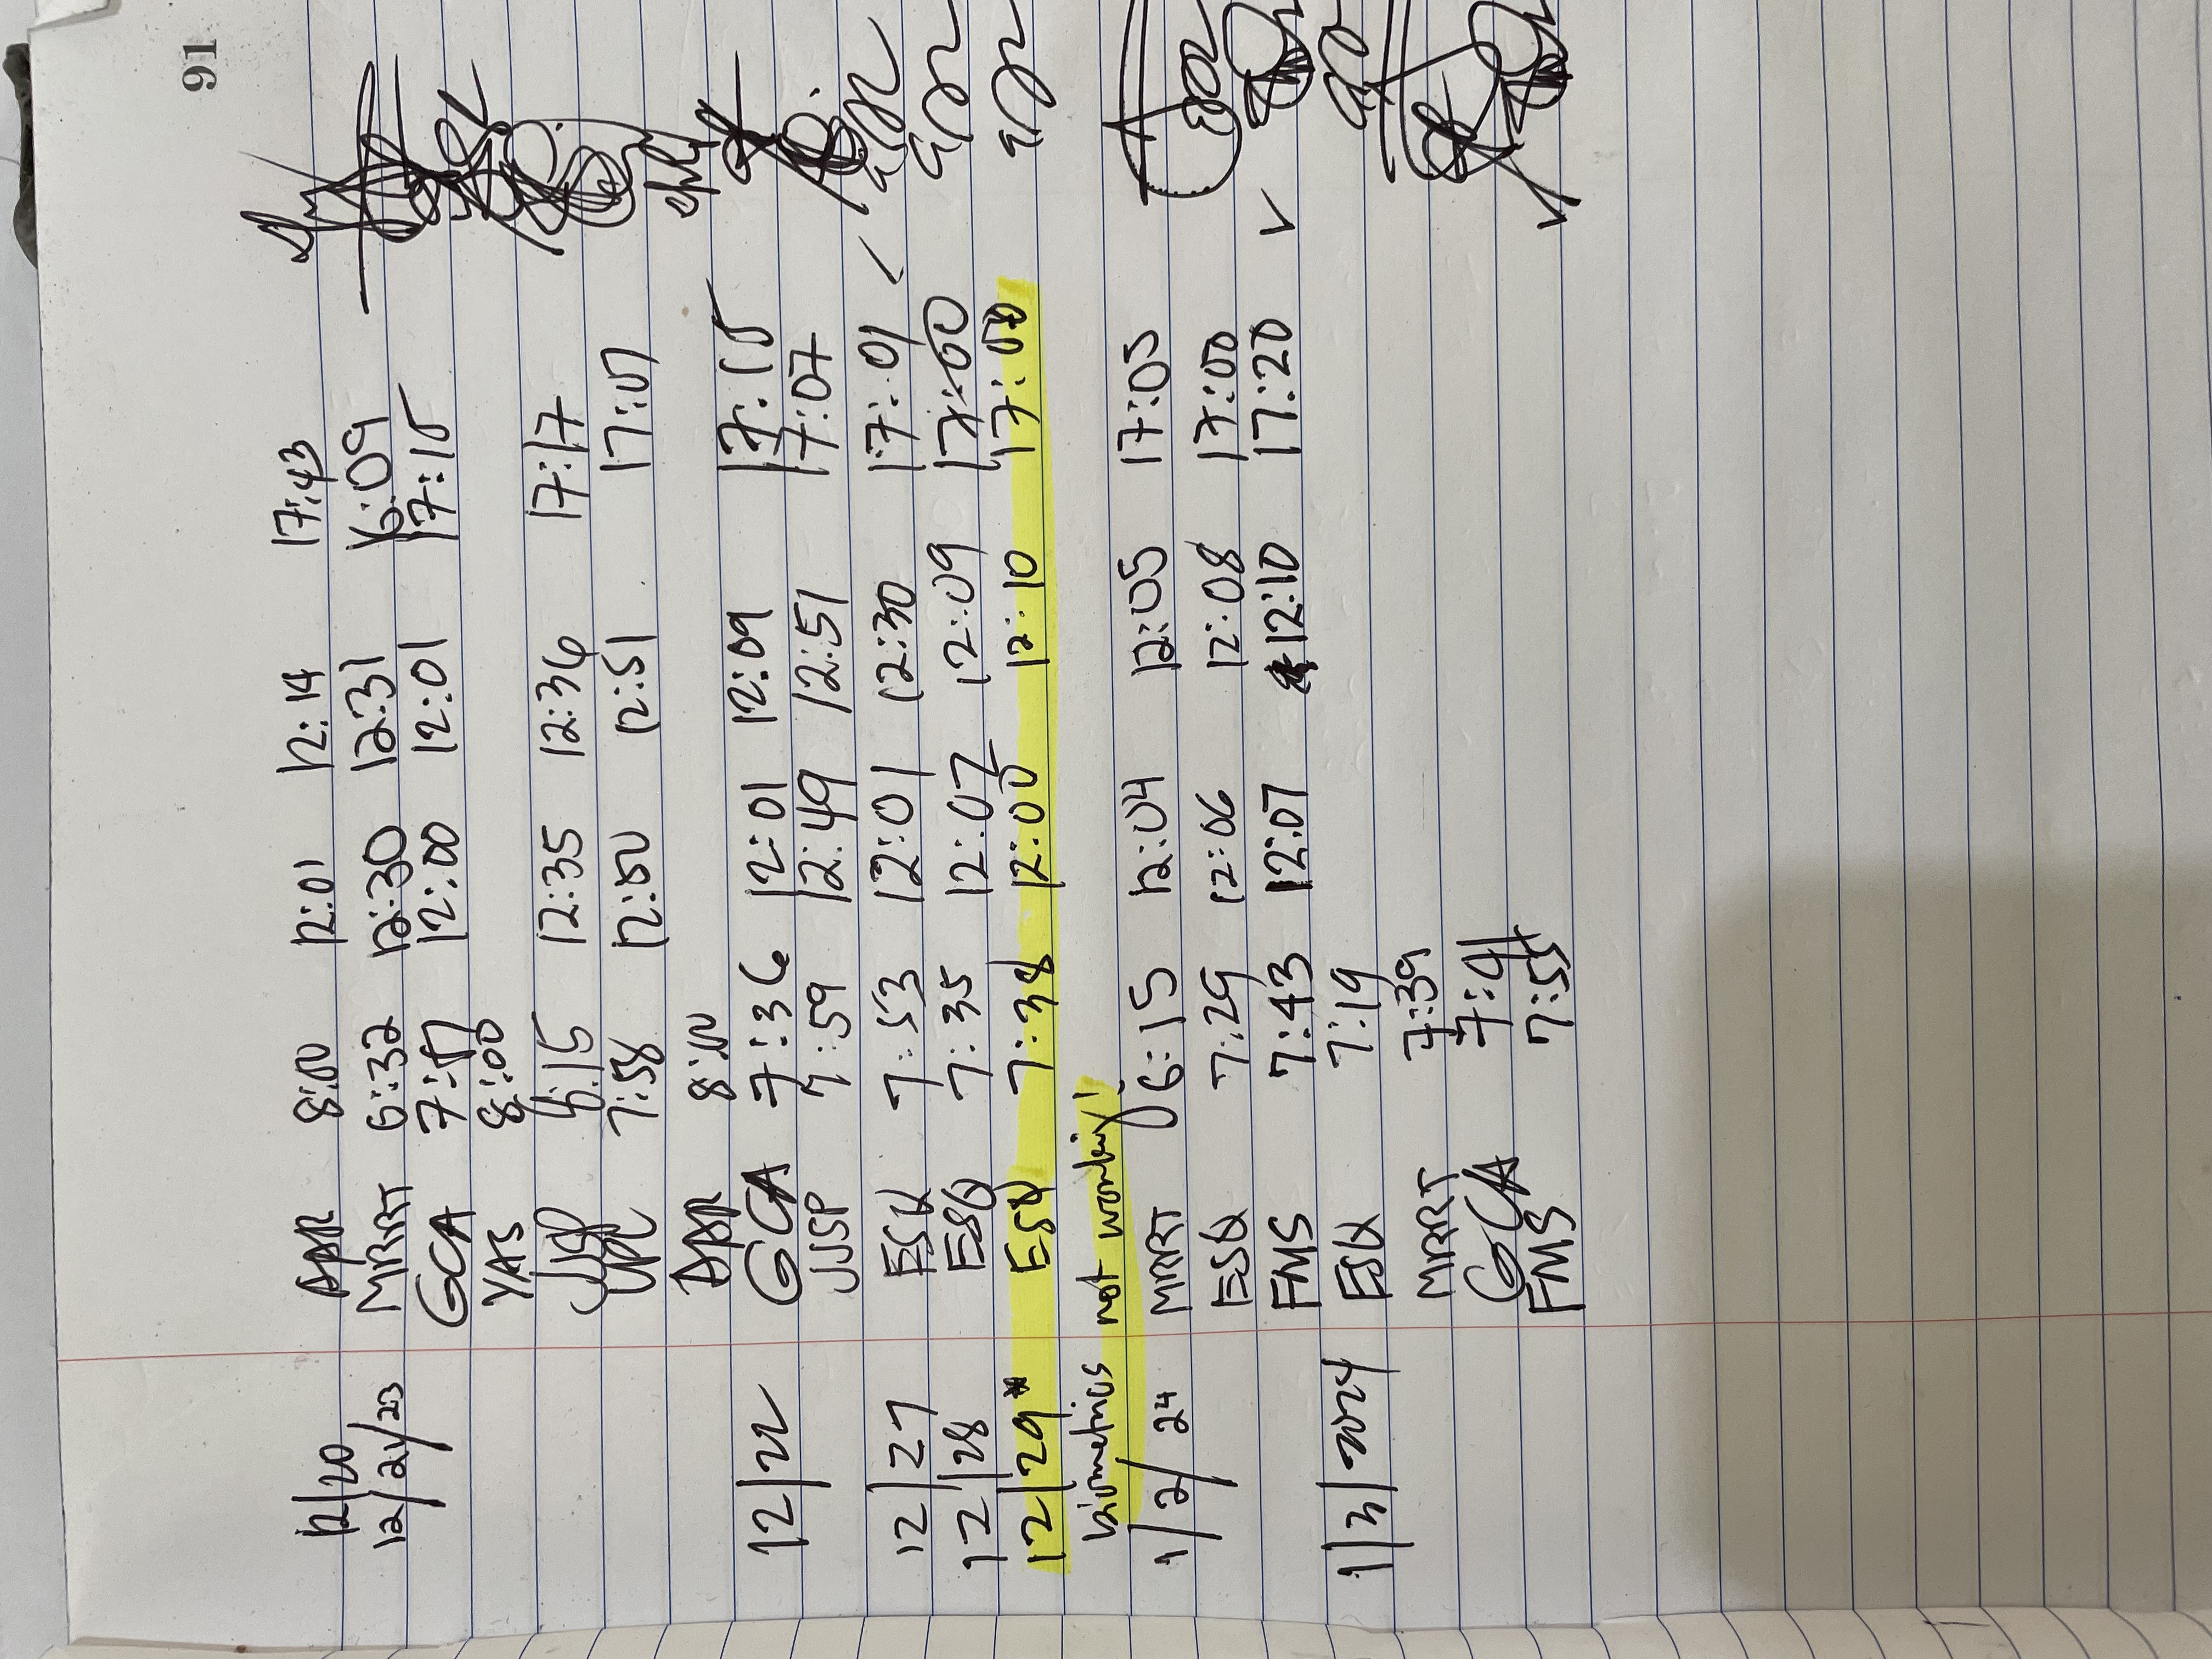 91
12/20 APR 8:00 12:01 12:14 17:43
12/21/23 MRRT 6:32 12:30 12:31 16:09
GCA 12:00 12:01 17:15
YAS 8:00
JJSP 12:35 12:36 17:17
7:58 12:50 12:51 17:01
APR 8:00
12/22 GCA 7:36 12:01 12:09 17:15
JJSP 7:59 12:49 12:51 17:07
12/27 ESQ 7:53 12:01 12:30 17:01
12/28 ESQ 7:35 12:07 12:09 17:00
12/29* ESQ 7:38 12:00 12:10 17:00
biometrics not working!
1/2/24 MRRT 6:15 12:04 12:05 17:05
ESQ 7:29 12:06 12:08 17:00
FMS 7:43 12:07 12:10 17:20
1/3/2024 ESQ 7:19
MRRT 7:39
GCA 7:41
FMS 7:55